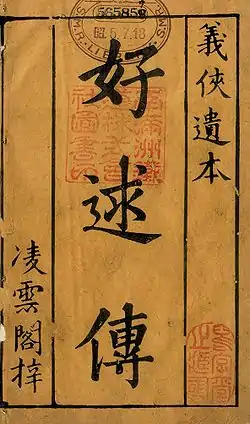 義俠遺本
好逑傳
凌雲閣梓
565858
5.7.18